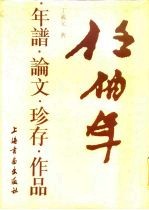 任伯年
丁羲元 著
年譜·論文·珍存·作品
上海書畫出版社